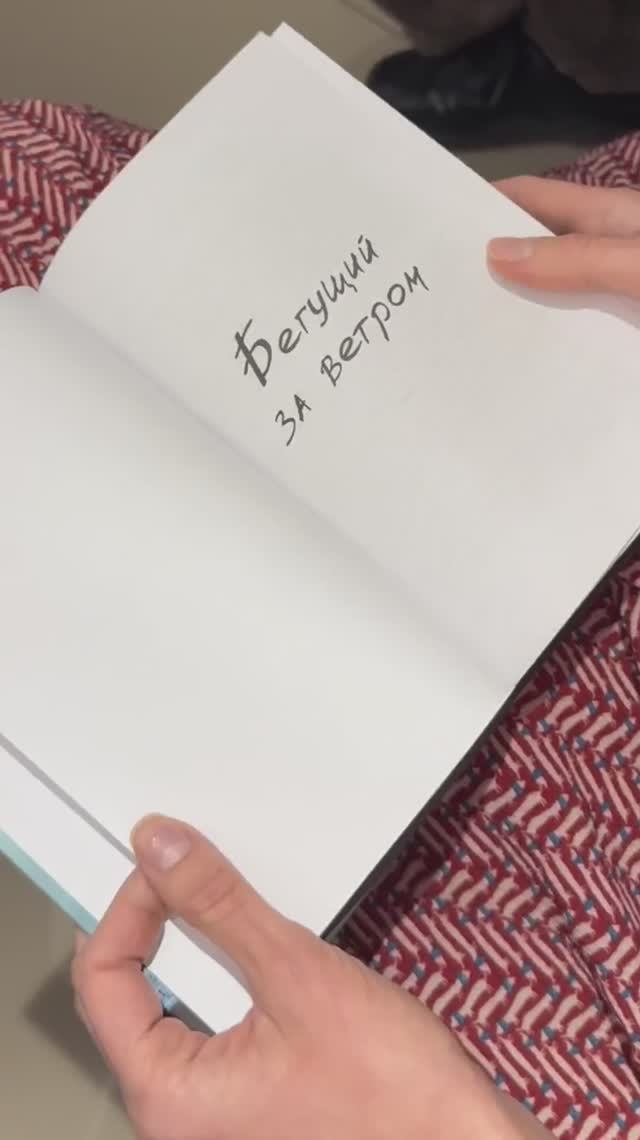 Бегущий
за ветром